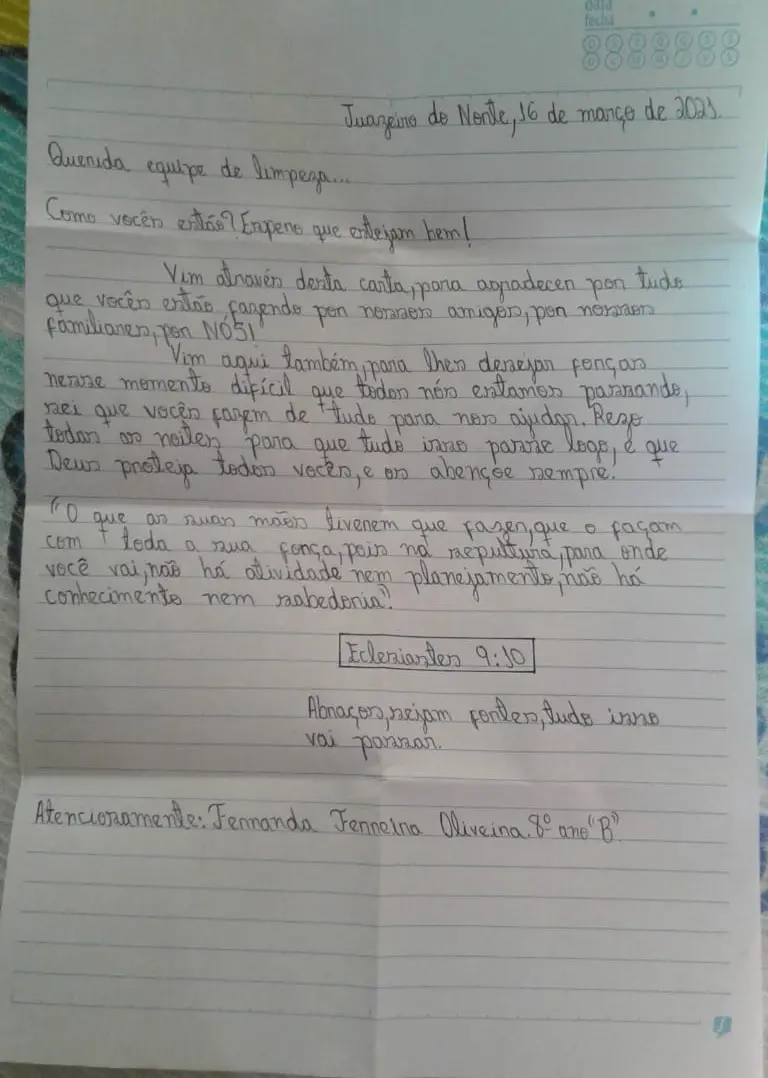 data
fecha
Juazeiro do Norte, 16 de março de 2021.
Querida equipe de limpeza...
Como vocês estão? Espero que estejam bem!
Vim através desta carta, para agradecer por tudo
que vocês estão fazendo por nossos amigos, por nossos
familiares, por NÓS!
Vim aqui também, para lhes desejar forças
nesse momento difícil que todos nós estamos passando,
sei que vocês fazem de tudo para nos ajudar. Rezo
todas as noites para que tudo isso passe logo, e que
Deus proteja todos vocês, e os abençoe sempre.
"O que as suas mãos tiverem que fazer, que o façam
com toda a sua força, pois na sepultura, para onde
você vai, não há atividade nem planejamento, não há
conhecimento nem sabedoria".
Eclesiastes 9:10
Abraços, sejam fortes, tudo isso
vai passar.
Atenciosamente: Fernanda Ferreira Oliveira. 8º ano "B"